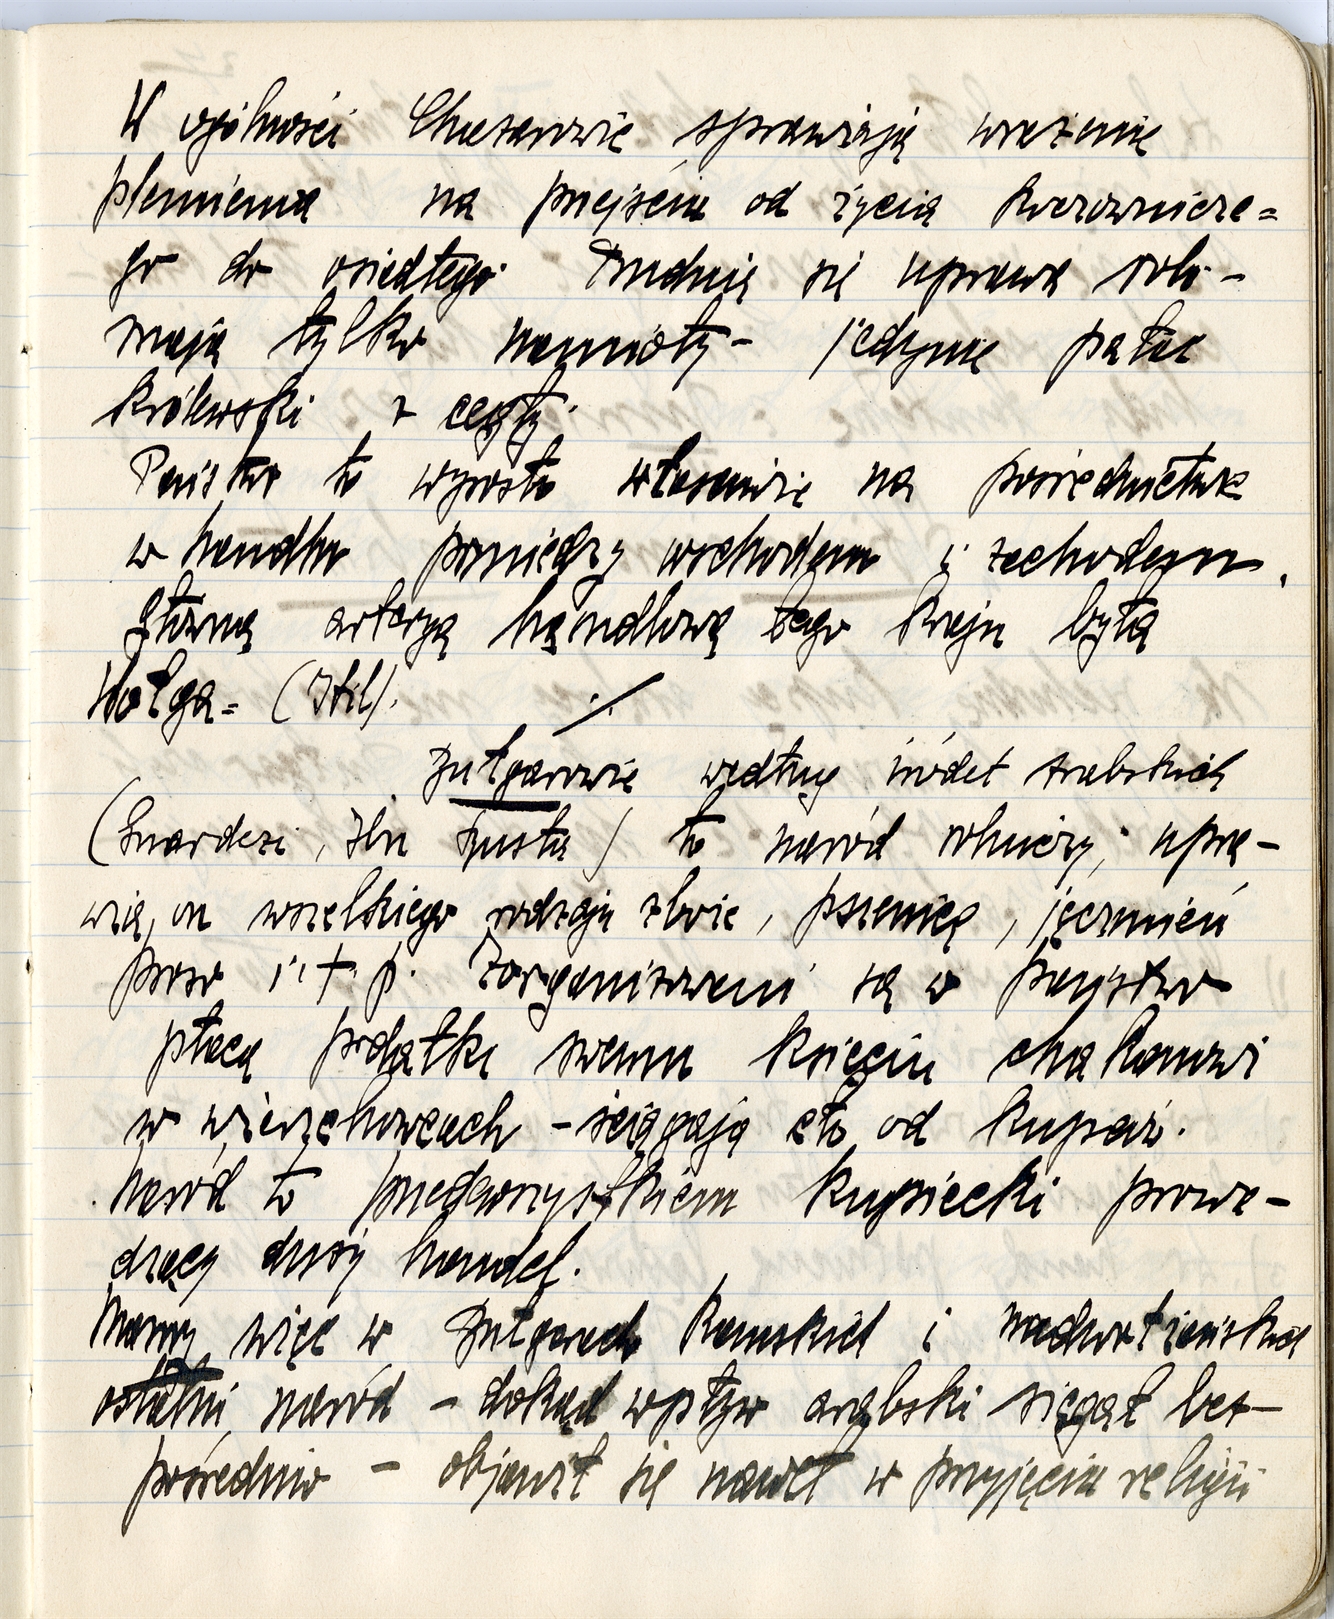 W ogólności Chazarowie sprawiają wrażenie
plemienia na przejściu od życia koczownicze=
go do osiadłego. Trudnią się uprawą roli -
mają tylko namioty - jedynie pałac
królewski z cegły.
Państwo to wyrosło właściwie na pośrednictwie
w handlu pomiędzy wschodem i zachodem.
Główną arterją handlową tego kraju była
Wołga = (Itil).
Bułgarowie według źródeł arabskich
(Guardezi, Ibn Rusta) to naród rolniczy; upra-
wia on wszelkiego rodzaju zboże, pszenicę, jęczmień
proso i t. p. Zorganizowani są w państwo
płacą podatki swemu księciu chakanowi
w wierzchowcach - ściągają cło od kupców.
Naród to przedewszystkiem kupiecki prowa-
dzący duży handel.
Mamy więc w Bułgarach Kamskich i nadwołżańskich
ostatni naród - dokąd wpływ arabski sięgał bez-
pośrednio - objawił się nawet w przyjęciu religii